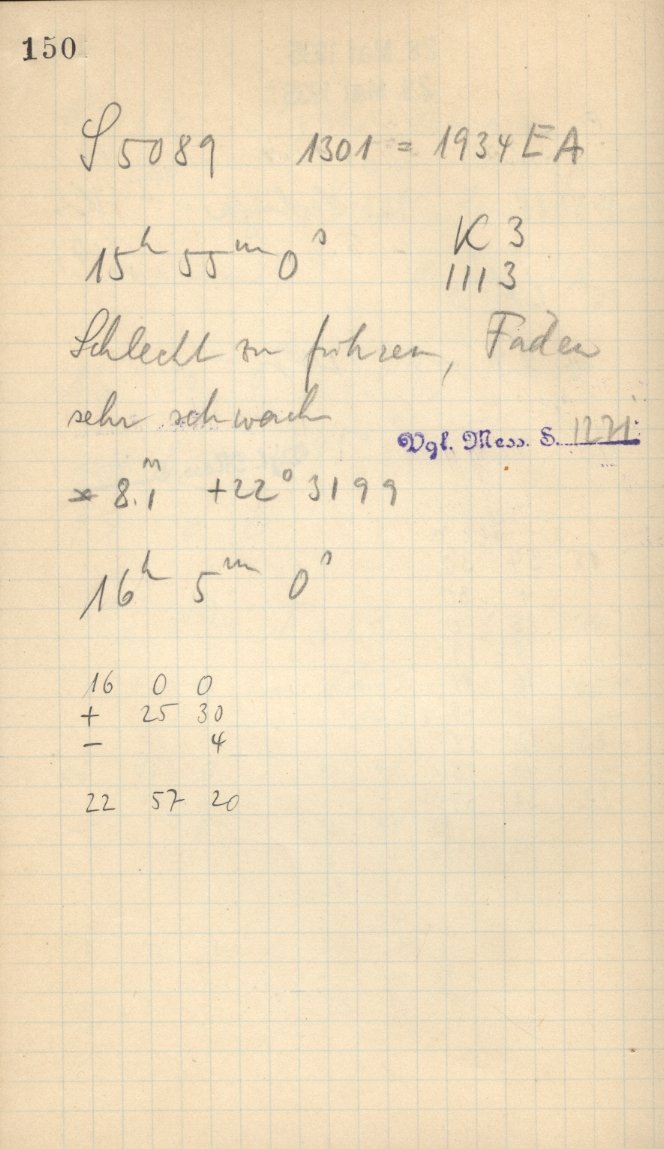 150
S 5089 1301 = 1934 EA
15ʰ 55ᵐ 0ˢ K 3
1113
Schlecht zu führen, Faden
sehr schwach
Vgl. Mess. S. 1271
* 8.1ᵐ +22° 3199
16ʰ 5ᵐ 0ˢ
16 0 0
+ 25 30
− 4
22 57 20